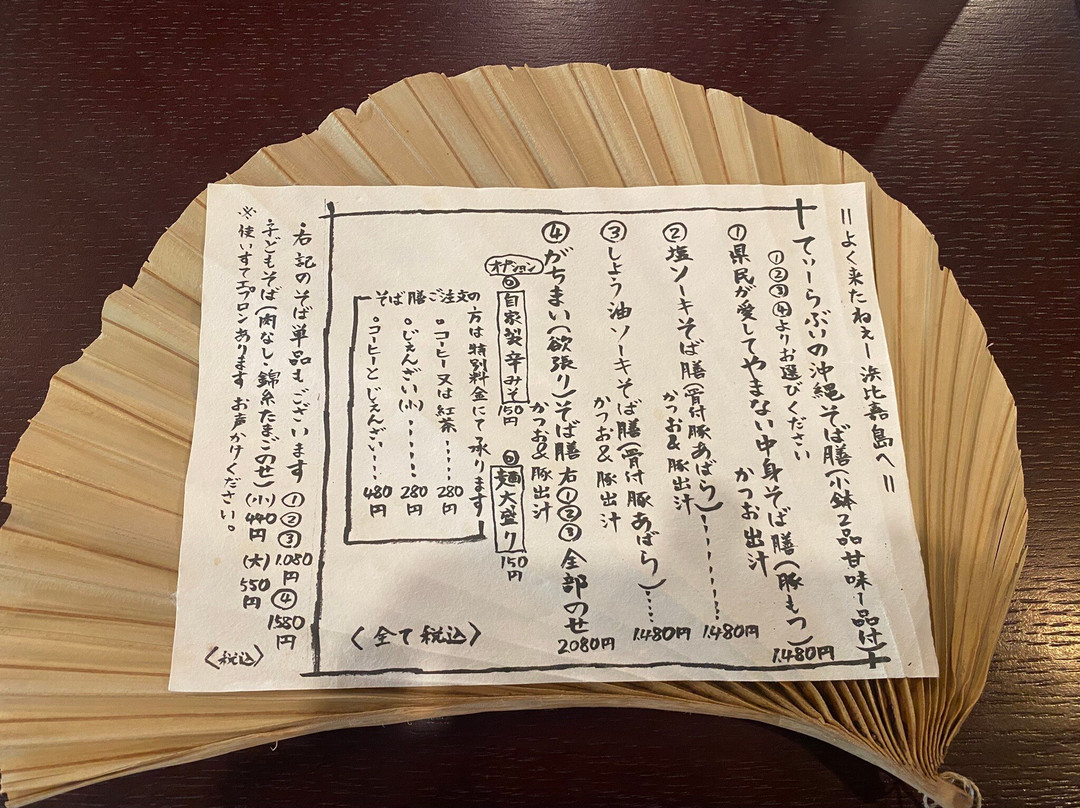 〓よく来たねぇー浜比嘉島へ〓
てぃーらぶいの沖縄そば膳(小鉢2品甘味1品付)
①②③④よりお選びください
①県民が愛してやまない中身そば膳(豚もつ)
かつお出汁
1.480円
②塩ソーキそば膳(骨付豚あばら)……
かつお&豚出汁
1.480円
③しょう油ソーキそば膳(骨付豚あばら)……
かつお&豚出汁
1.480円
④がちまい(欲張り)そば膳 右①②③ 全部のせ
かつお&豚出汁
2080円
オプション
◎自家製辛みそ 150円
◎麺大盛り 150円
そば膳ご注文の方は特別料金にて承ります
○コーヒー又は紅茶……280円
○じぇんざい(小)……280円
○コーヒーとじぇんざい……480円
〈全て税込〉
・右記のそば単品もございます ①②③1.080円 ④1580円
・子どもそば(肉なし錦糸たまごのせ)(小)440円 (大)550円
※使いすてエプロンあります お声かけください。
〈税込〉